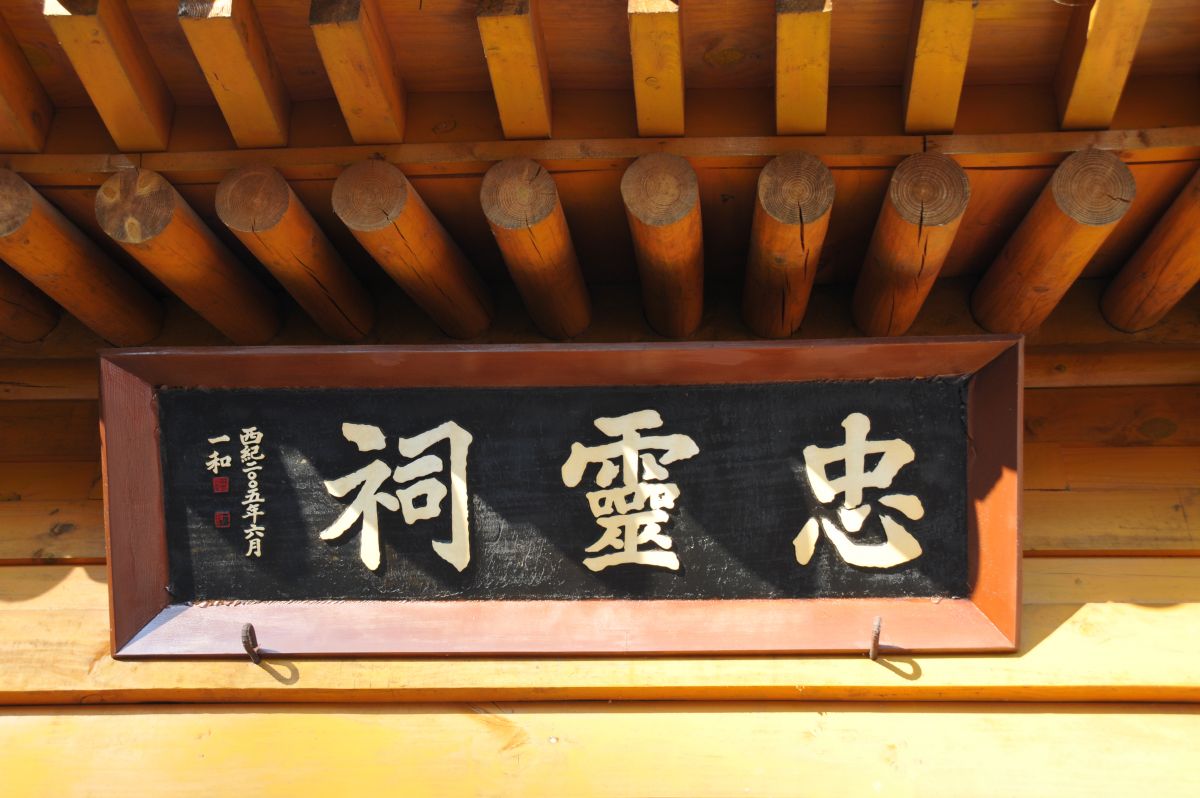 忠靈祠
西紀二〇〇五年六月
一和